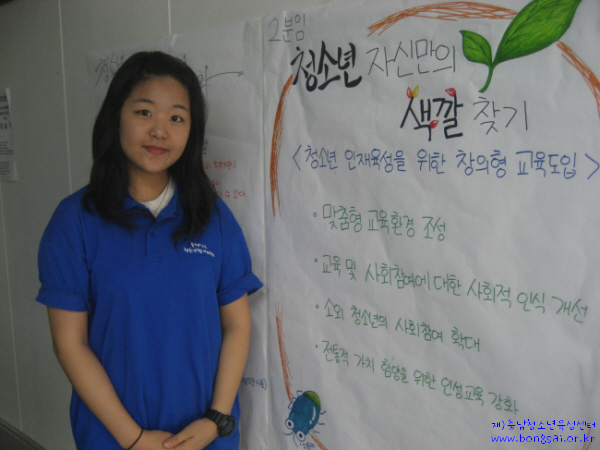 2분임
청소년 자신만의
색깔 찾기
<청소년 인재육성을 위한 창의형 교육도입>
· 맞춤형 교육환경 조성
· 교육 및 사회참여에 대한 사회적 인식 개선
· 소외 청소년의 사회참여 확대
· 전통적 가치 함양을 위한 인성교육 강화
재)충남청소년육성센터
www.bongsai.or.kr